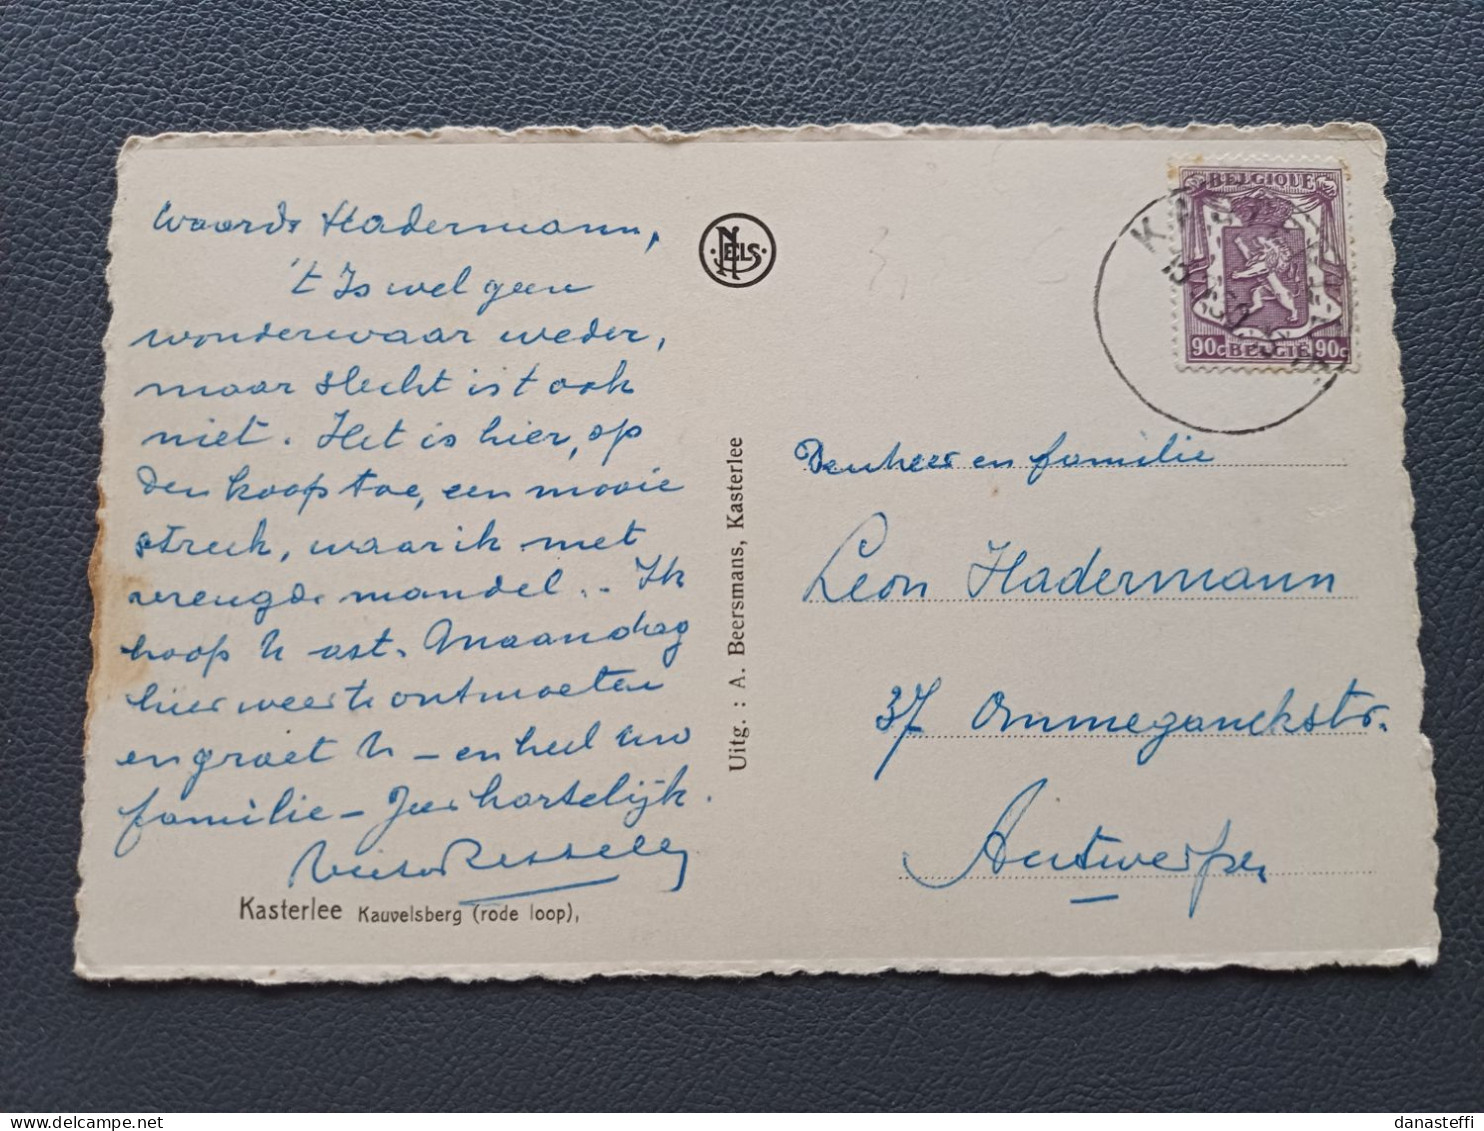 Waarde Hadermann,
't Is wel geen
wonderwaar weder,
maar slecht is t ook
niet. Het is hier, op
den koop toe, een mooie
streek, waar ik met
vreugde wandel.. Ik
hoop U ast. Maandag
hier weer te ontmoeten
en groet U - en heel uw
familie - zeer hartelijk.
Kasterlee Kauvelsberg (rode loop),
NELS
Uitg. : A. Beersmans, Kasterlee
BELGIQUE
90c BELGIË 90c
Denheer en familie
Leon Hadermann
37 Ommeganckstr.
Antwerpen
danasteffi